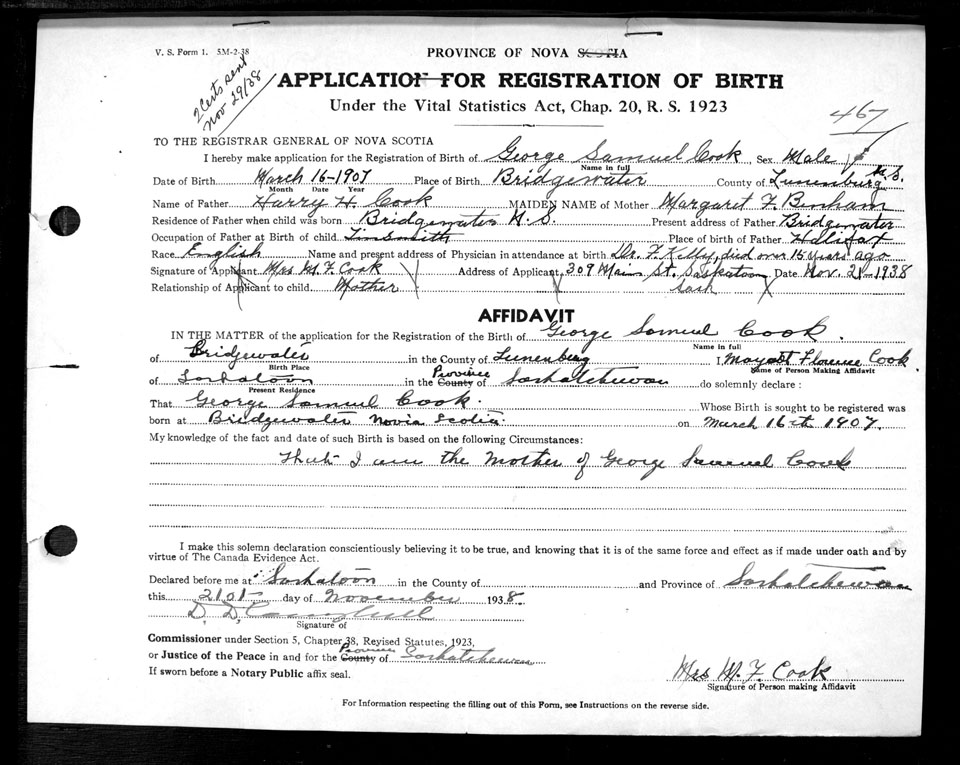 V. S. Form 1. 5M-2-38
PROVINCE OF NOVA SCOTIA
2 Certs sent
Nov 29/38
APPLICATION FOR REGISTRATION OF BIRTH
Under the Vital Statistics Act, Chap. 20, R. S. 1923
467
TO THE REGISTRAR GENERAL OF NOVA SCOTIA
I hereby make application for the Registration of Birth of George Samuel Cook, Sex Male
Name in full
Date of Birth March 16-1907 Place of Birth Bridgewater County of Lunenburg N.S.
Month Date Year
Name of Father Harry H. Cook MAIDEN NAME of Mother Margaret F. Benham
Residence of Father when child was born Bridgewater N.S. Present address of Father Bridgewater
Occupation of Father at Birth of child Tinsmith Place of birth of Father Halifax
Race English Name and present address of Physician in attendance at birth Dr. F. Kelly, died over 15 years ago
Signature of Applicant Mrs M. F. Cook Address of Applicant 309 Main St. Saskatoon Date Nov. 21-1938
Relationship of Applicant to child Mother Sask
AFFIDAVIT
IN THE MATTER of the application for the Registration of the Birth of George Samuel Cook.
Name in full
of Bridgewater in the County of Lunenberg I Florence Cook
Birth Place Name of Person Making Affidavit
of Saskatoon in the County Province of Saskatchewan do solemnly declare :
Present Residence
That George Samuel Cook. Whose Birth is sought to be registered was
born at Bridgewater Novia Scotia. on March 16th 1907.
My knowledge of the fact and date of such Birth is based on the following Circumstances:
That I am the Mother of George Samuel Cook
I make this solemn declaration conscientiously believing it to be true, and knowing that it is of the same force and effect as if made under oath and by
virtue of The Canada Evidence Act.
Declared before me at Saskatoon in the County of and Province of Saskatchewan
this 21st day of November 1938.
D. D. Campbell
Signature of
Commissioner under Section 5, Chapter 38, Revised Statutes, 1923,
or Justice of the Peace in and for the County Province of Saskatchewan
If sworn before a Notary Public affix seal.
Mrs M. F. Cook
Signature of Person making Affidavit
For Information respecting the filling out of this Form, see Instructions on the reverse side.